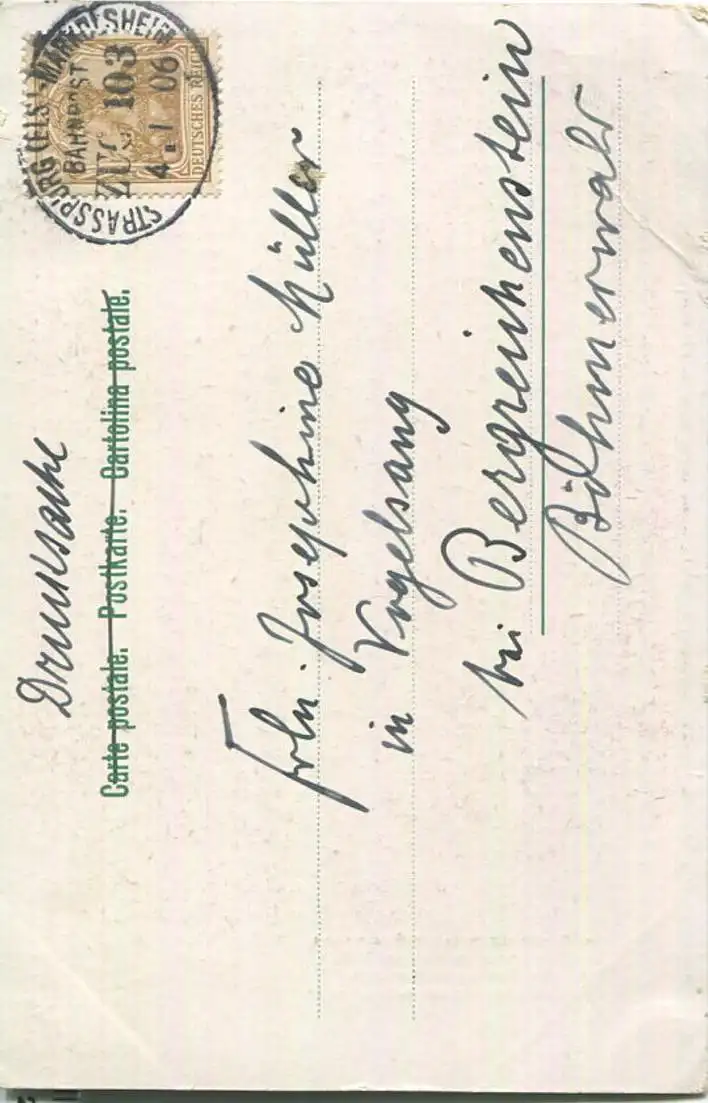 Drucksache
Carte postale. Postkarte. Cartolina postale.
STRASSBURG (ELS)-MARKOLSHEIM
BAHNPOST
ZUG 103
4 1 06
DEUTSCHES REICH
Frln. Josephine Müller
in Vogelsang
bei Bergreichenstein
Böhmerwald